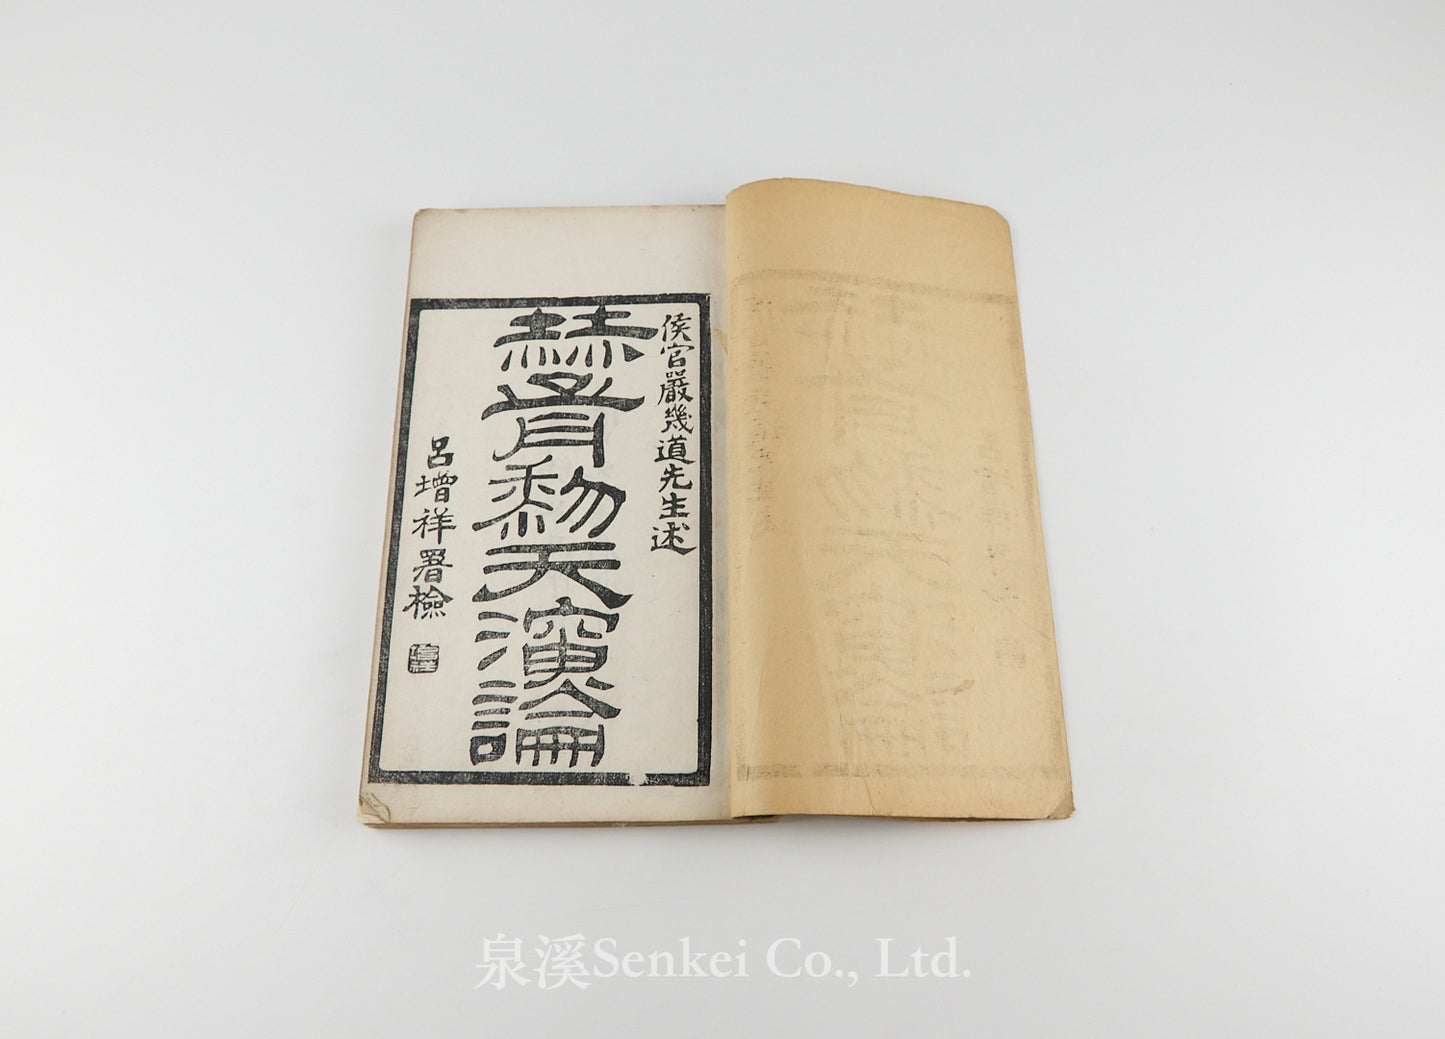 侯官嚴幾道先生述
赫胥黎天演論
呂增祥署檢
泉溪Senkei Co., Ltd.